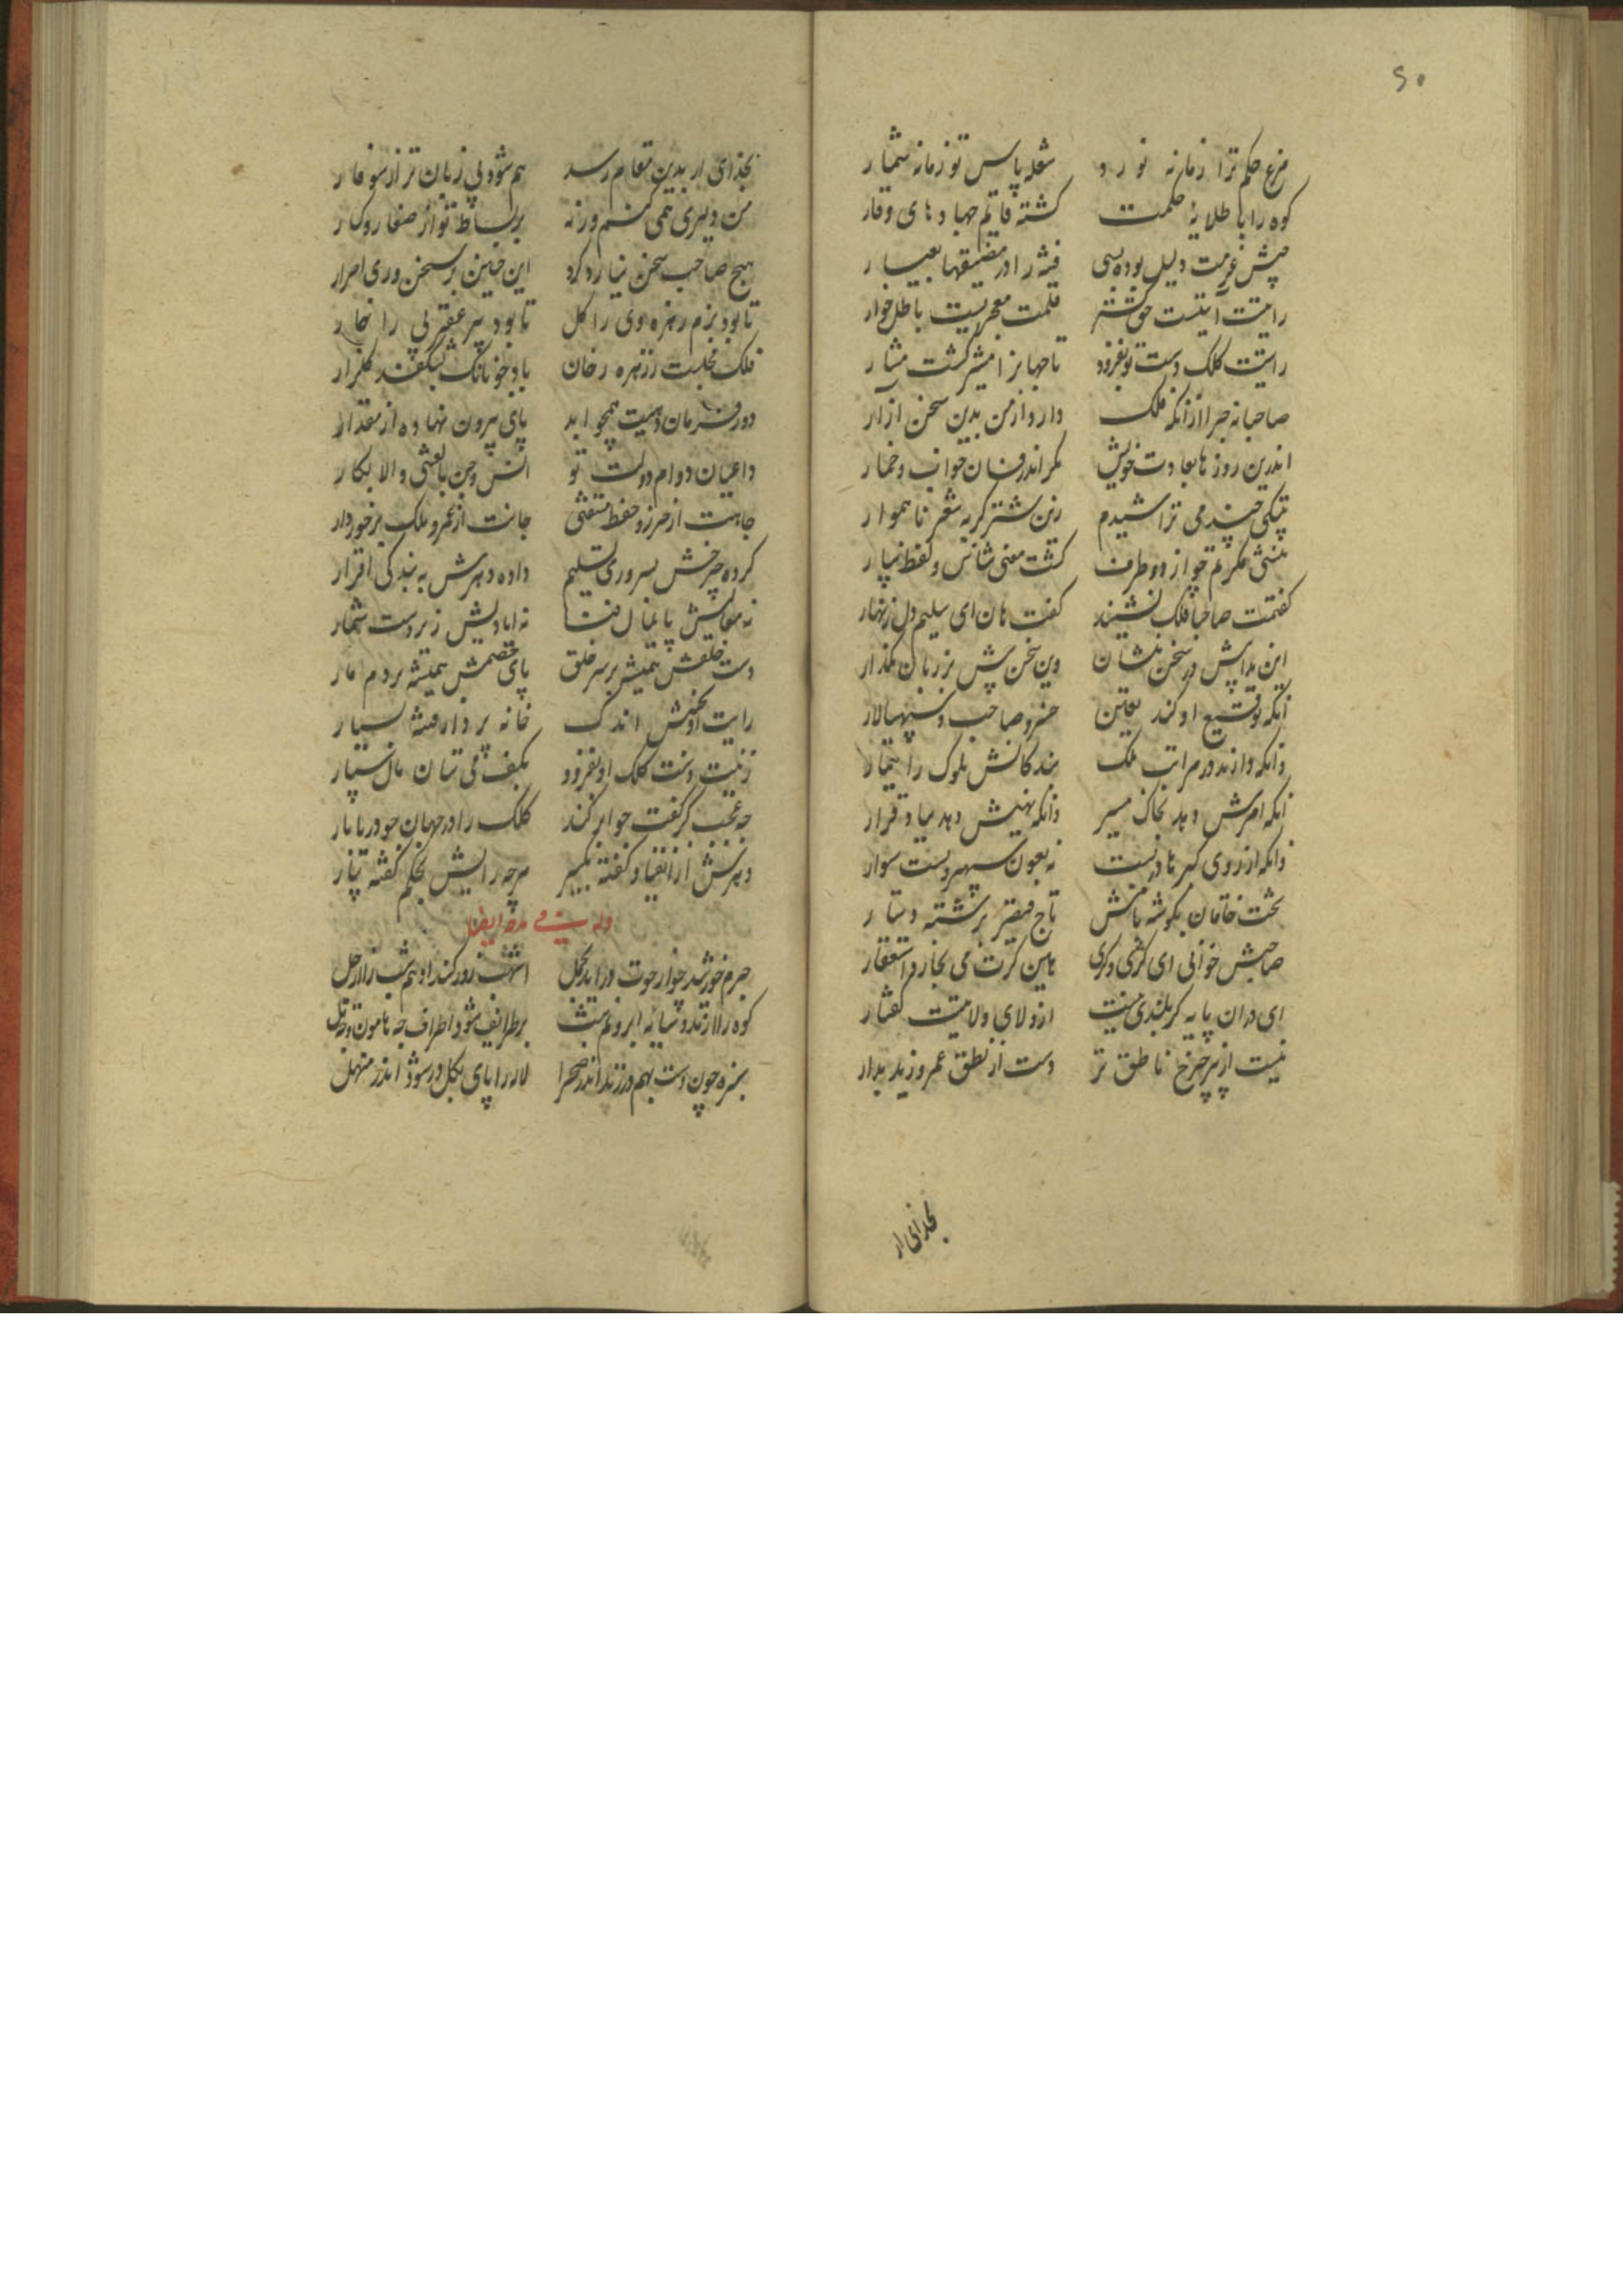 ۶۰
مرغ حکم ترا زمانه نورد
شعله پاس تو زمانه شمار
کوه را با طلایهٔ حلمت
کشته قایم جهادهای وقار
جیش عزمت دلیل بوده بسی
فتنه را در مضیقهاء
رایت آیتیست حق گستر
قلمت معجزیست باطل خوار
رایت کلک دست تو بفزود
تا جهانرا مشیر کشت مشار
صاحبا نه جرا ازانکه فلک
دارد از من بدین سخن ازار
اندرین روزها بعادت خویش
مکر اندر میان خواب و خمار
بیتکی چند می تراشیدم
زین شتر کربه شعر ناهموار
منشی فکرتم چو از دو طرف
کشت معنی ستان و لفظ سپار
کفتمت صاحبا فلک بشنید
کفت هان ای سلیم دل زنهار
این ندا بیش در سخن منشان
وین سخن بیش بر زبان مکذار
آنکه توقیع او کند تعیین
خسرو صاحب و سپهسالار
وانکه دارند در مراتب ملک
بندکانش ملوک را تیمار
انکه امرش دهد بخاک مسیر
وانکه نهیش دهد بباد قرار
وانکه از روی کبریا دربست
نه بعون سپهر و بست سوار
تخت خاقان بکوشه بالش
تاج قیصر بریشه دستار
صاحبش خوانی ای کذی و کری
هین کرت می بخارد استغفار
ای دران پایه کز بلندی نیست
از ولای ولایتت کفتار
نیست از تیر جرخ ناطق تر
دست از نطق عمر و زید بدار
بخدای ار
بخدای ار بدین مقام رسد
هم شود بی زبان تر از سوفار
من دلیری همی کنم ورنه
بر بساط تو از صغار و کبار
هیج صاحب سخن نیارد کرد
این جنین بر سخن وری اصرار
تا بود بزم زهره وی را کل
تا بود تیر عقربی را خار
فلک مجلست ز زهره رخان
باد جونانک بشکفد کلزار
دور فرمان دهیت همچو ابد
پای بیرون نهاده از مقدار
داعیان دوام دولت تو
انس و جن بالعشی والابکار
جاهت از حرز و حفظ مستغنی
جانت از عمر و ملک برخوردار
کرده جرخش بسروری تسلیم
داده دهرش به بندکی اقرار
نه معالیش پایمال فنا
نه ایادیش زیردست شمار
دست خلقش همیشه بر سر خلق
پای خصمش همیشه بر دم مار
رایت او بجنبش اندک
خانه پرداز فتنهٔ بسیار
زینت دست کلک او بفزود
بکف می ستان مال سپار
جه عجب کر کفت جواهر کند
کلک را در جهان جو دریا بار
دهرش از انقیاد کفته بکیر
هرجه رایش بحکم کفته بیار
وله فی مدحه ایضا
جرم خورشید چو از حوت دراید بحمل
اشهب روز کند ادهم شب را ارجل
کوه را از مدد سایهٔ ابر و نم شب
پر طرایف شود اطراف جه هامون و جه تل
سبزه جون دست بهم درزند اندر صحرا
لاله را پای بکل در شود اندر منهل